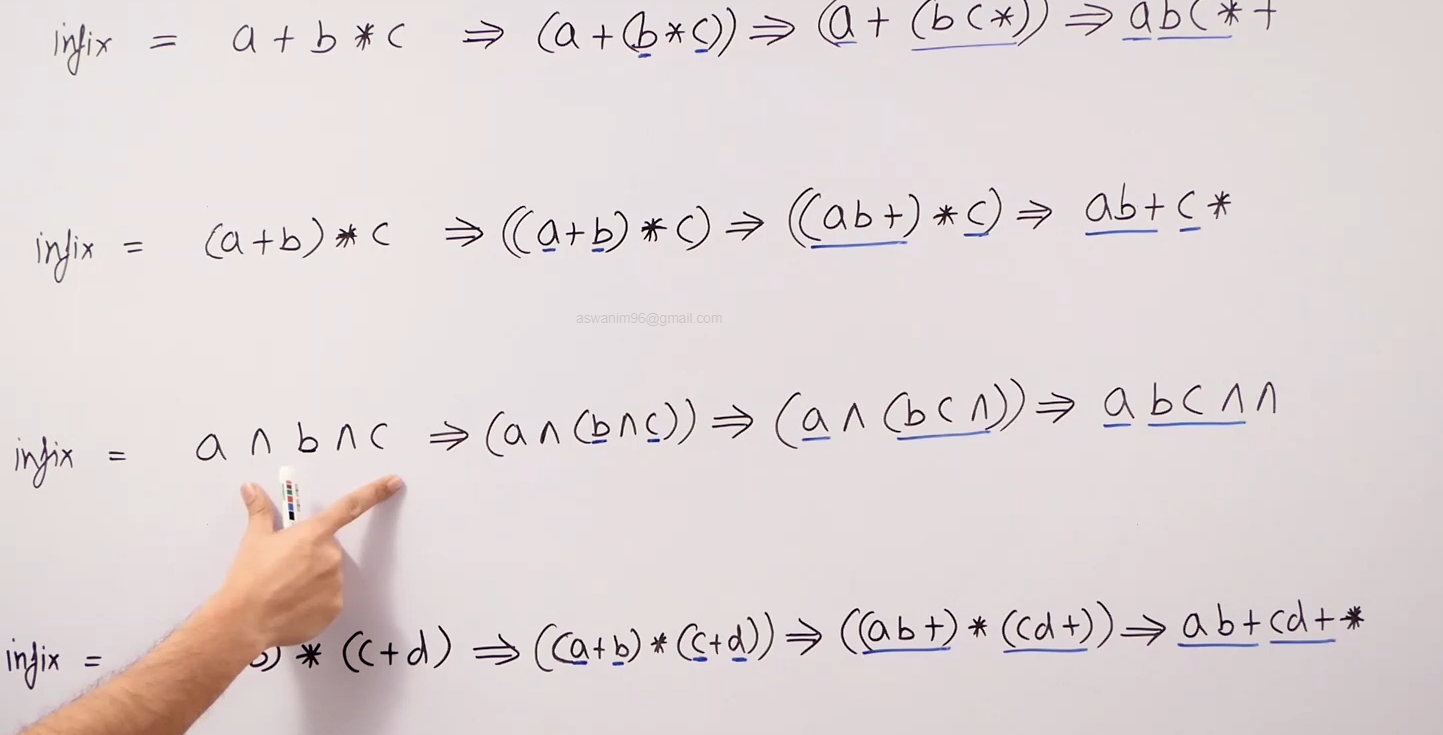 infix = a + b * c ⇒ (a + (b * c)) ⇒ (a + (b c *)) ⇒ a b c * +
infix = (a + b) * c ⇒ ((a + b) * c) ⇒ ((a b +) * c) ⇒ a b + c *
aswanim96@gmail.com
infix = a ∧ b ∧ c ⇒ (a ∧ (b ∧ c)) ⇒ (a ∧ (b c ∧)) ⇒ a b c ∧ ∧
infix = b) * (c + d) ⇒ ((a + b) * (c + d)) ⇒ ((a b +) * (c d +)) ⇒ a b + c d + *